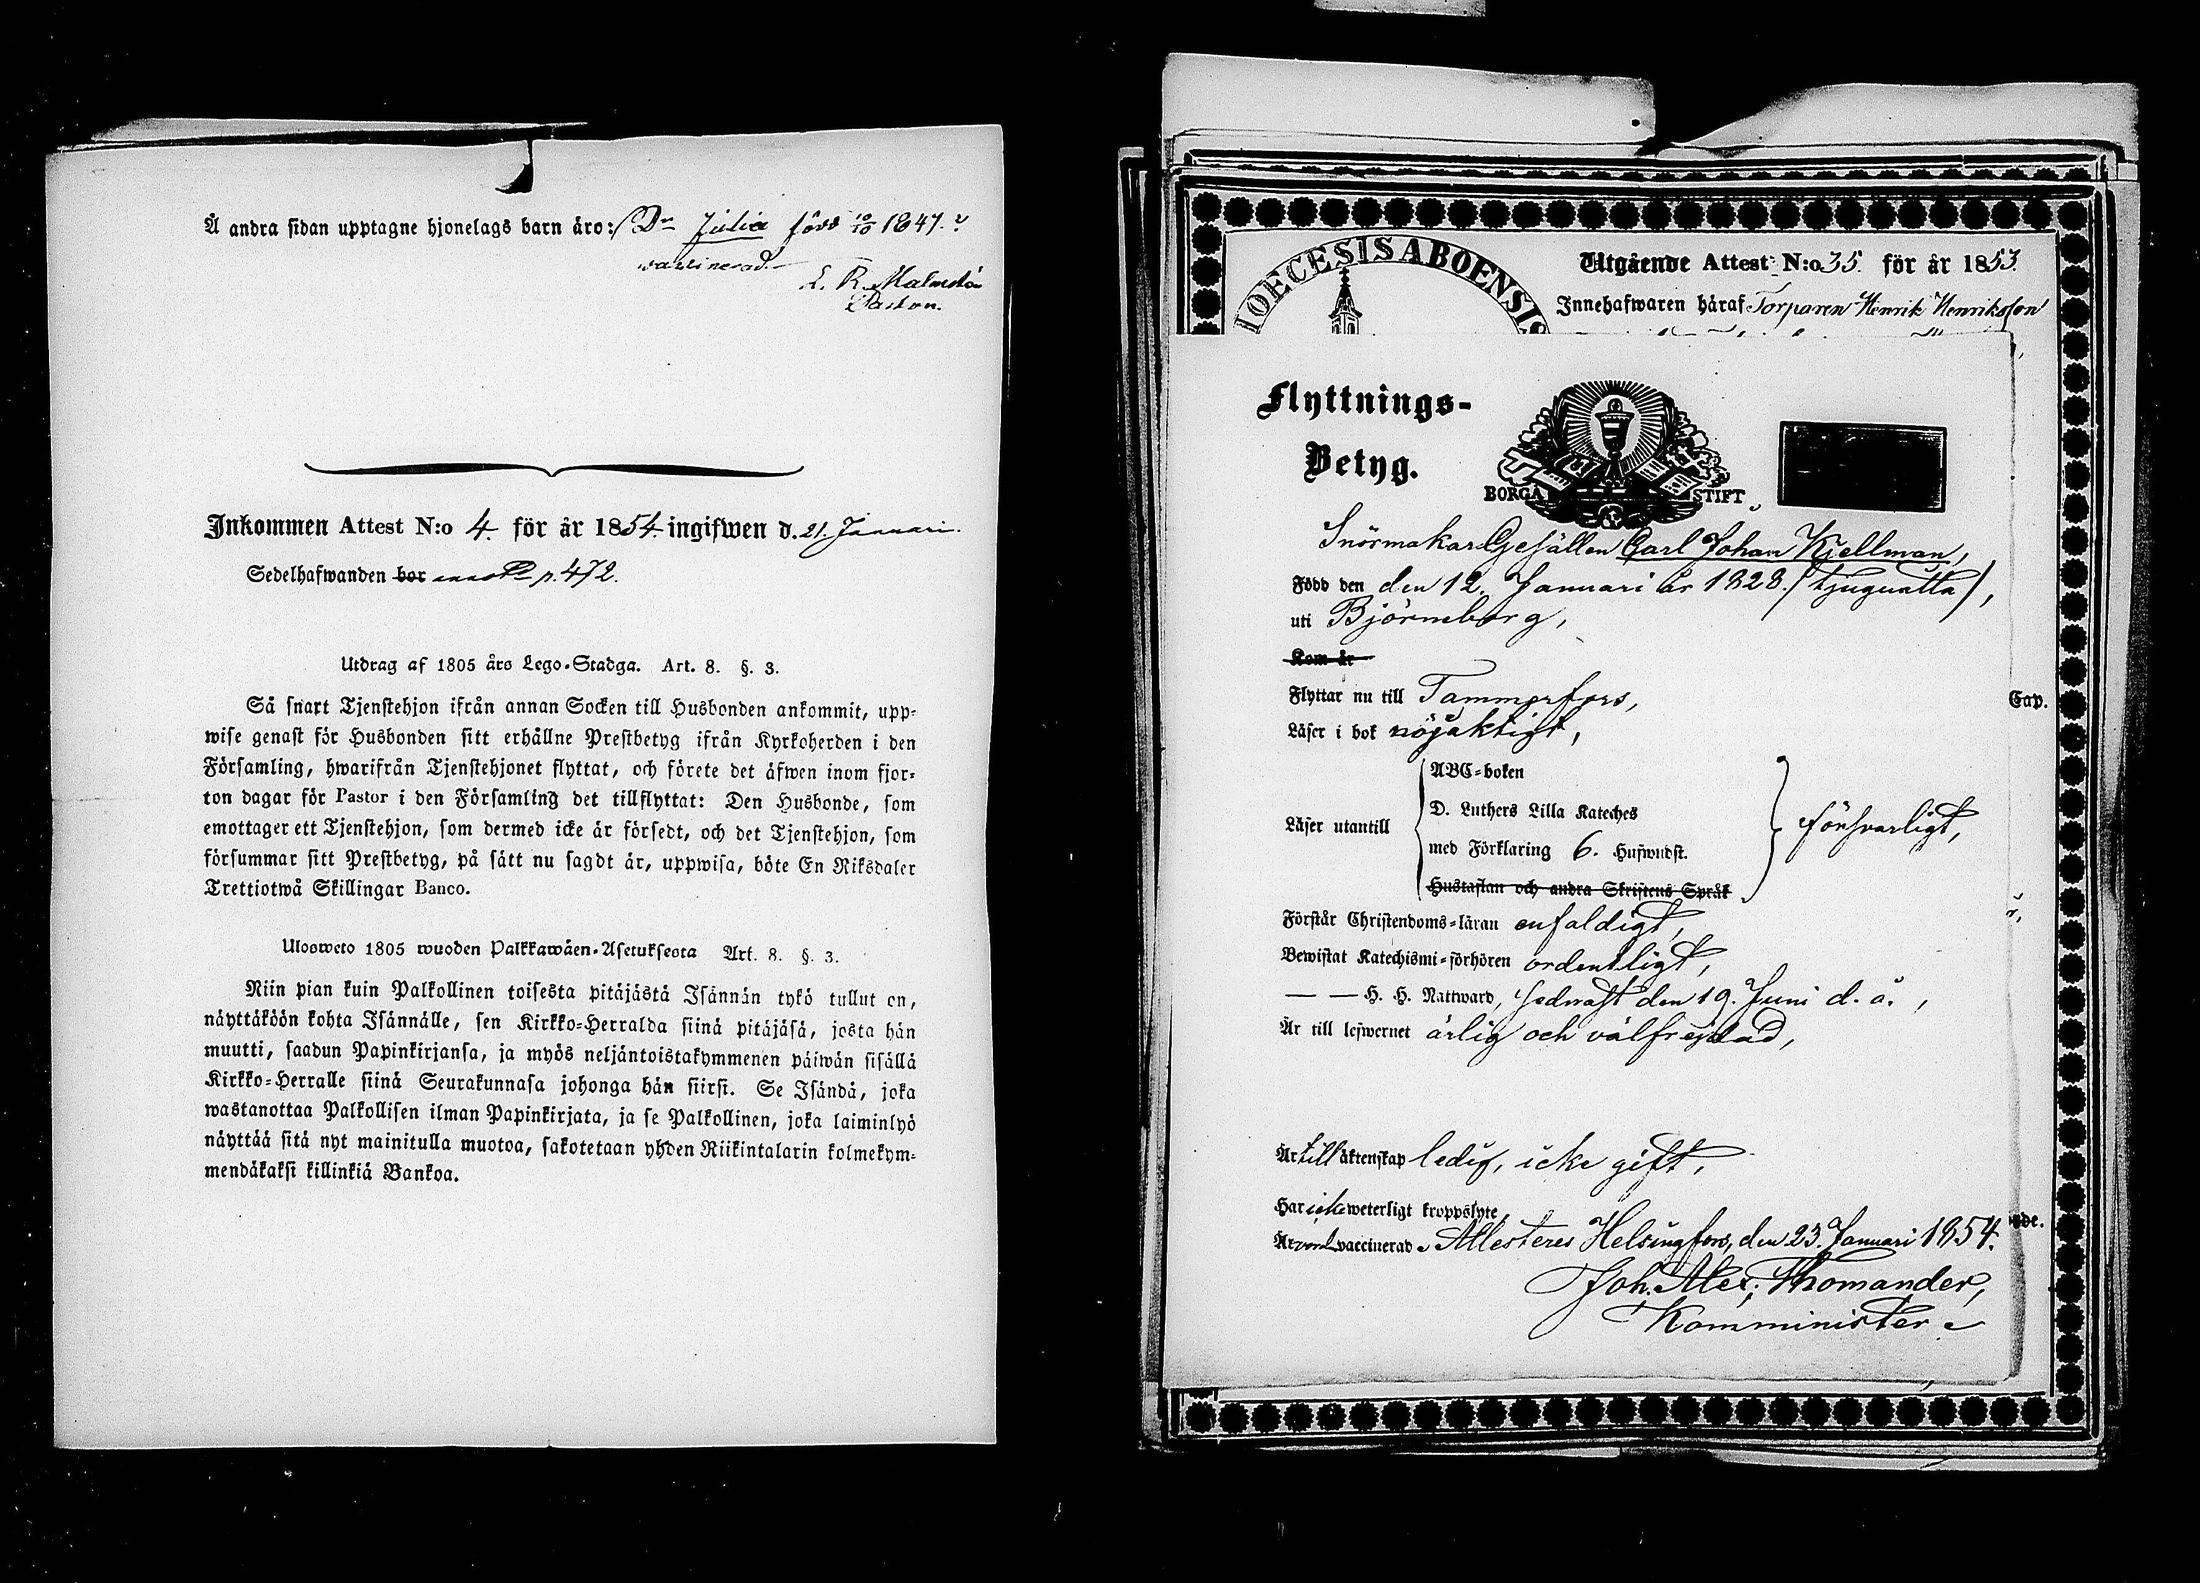 Å andra sidan upptagne hjonelags barn äro: Dr Julia född 10/10 1847.
vaccinerad.
Pastor.
Inkommen Attest N:o 4. för år 1854. ingifwen d. 21. Januari.
Sedelhafwanden bor p. 472.
Utdrag af 1805 års Lego-Stadga. Art. 8. §. 3.
Så snart Tjenstehjon ifrån annan Socken till Husbonden ankommit, upp-
wise genast för Husbonden sitt erhållne Prestbetyg ifrån Kyrkoherden i den
Församling, hwarifrån Tjenstehjonet flyttat, och förete det äfwen inom fjor-
ton dagar för Pastor i den Församling det tillflyttat: Den Husbonde, som
emottager ett Tjenstehjon, som dermed icke är försedt, och det Tjenstehjon, som
försummar sitt Prestbetyg, på sätt nu sagdt är, uppwisa, böte En Riksdaler
Trettiotwå Skillingar Banco.
Ulosweto 1805 wuoden Palkkawäen-Asetuksesta Art. 8. §. 3.
Niin pian kuin Palkollinen toisesta pitäjästä Isännän tykö tullut on,
näyttäköön kohta Isännälle, sen Kirkko-Herralda siinä pitäjäsä, josta hän
muutti, saadun Papinkirjansa, ja myös neljäntoistakymmenen päiwän sisällä
Kirkko-Herralle siinä Seurakunnasa johonga hän siirsi. Se Isändä, joka
wastanottaa Palkollisen ilman Papinkirjata, ja se Palkollinen, joka laiminlyö
näyttää sitä nyt mainitulla muotoa, sakotetaan yhden Riikintalarin kolmekym-
mendäkaksi killinkiä Bankoa.
IOECESIS ABOENSIS
Utgående Attest N:o 35. för år 1853.
Innehafwaren häraf Torparen Henrik Henriksson
Flyttnings-
Betyg.
BORGÅ STIFT
Snörmakar Gesällen Carl Johan Kjellman,
Född den den 12. Januari år 1828. (tjuguåtta),
uti Björneborg,
Kom år
Flyttar nu till Tammerfors,
Cap.
Läser i bok nöjaktigt,
Läser utantill
ABC-boken
D. Luthers Lilla Kateches
med Förklaring 6. Hufwudst.
Hustaflan och andra Skriftens Språk
försvarligt,
Förstår Christendoms-läran enfaldigt,
Bewistat Katechismi-förhören ordentligt,
— — H. H. Nattward, sednast den 19. Juni d. å.,
Är till lefwernet ärlig och välfrejdad,
Är till äktenskap ledig, icke gift,
Har icke weterligt kroppslyte,
Är vaccinerad. Attesteres Helsingfors, den 23. Januari 1854.
Joh. Alex. Thomander,
Komminister.